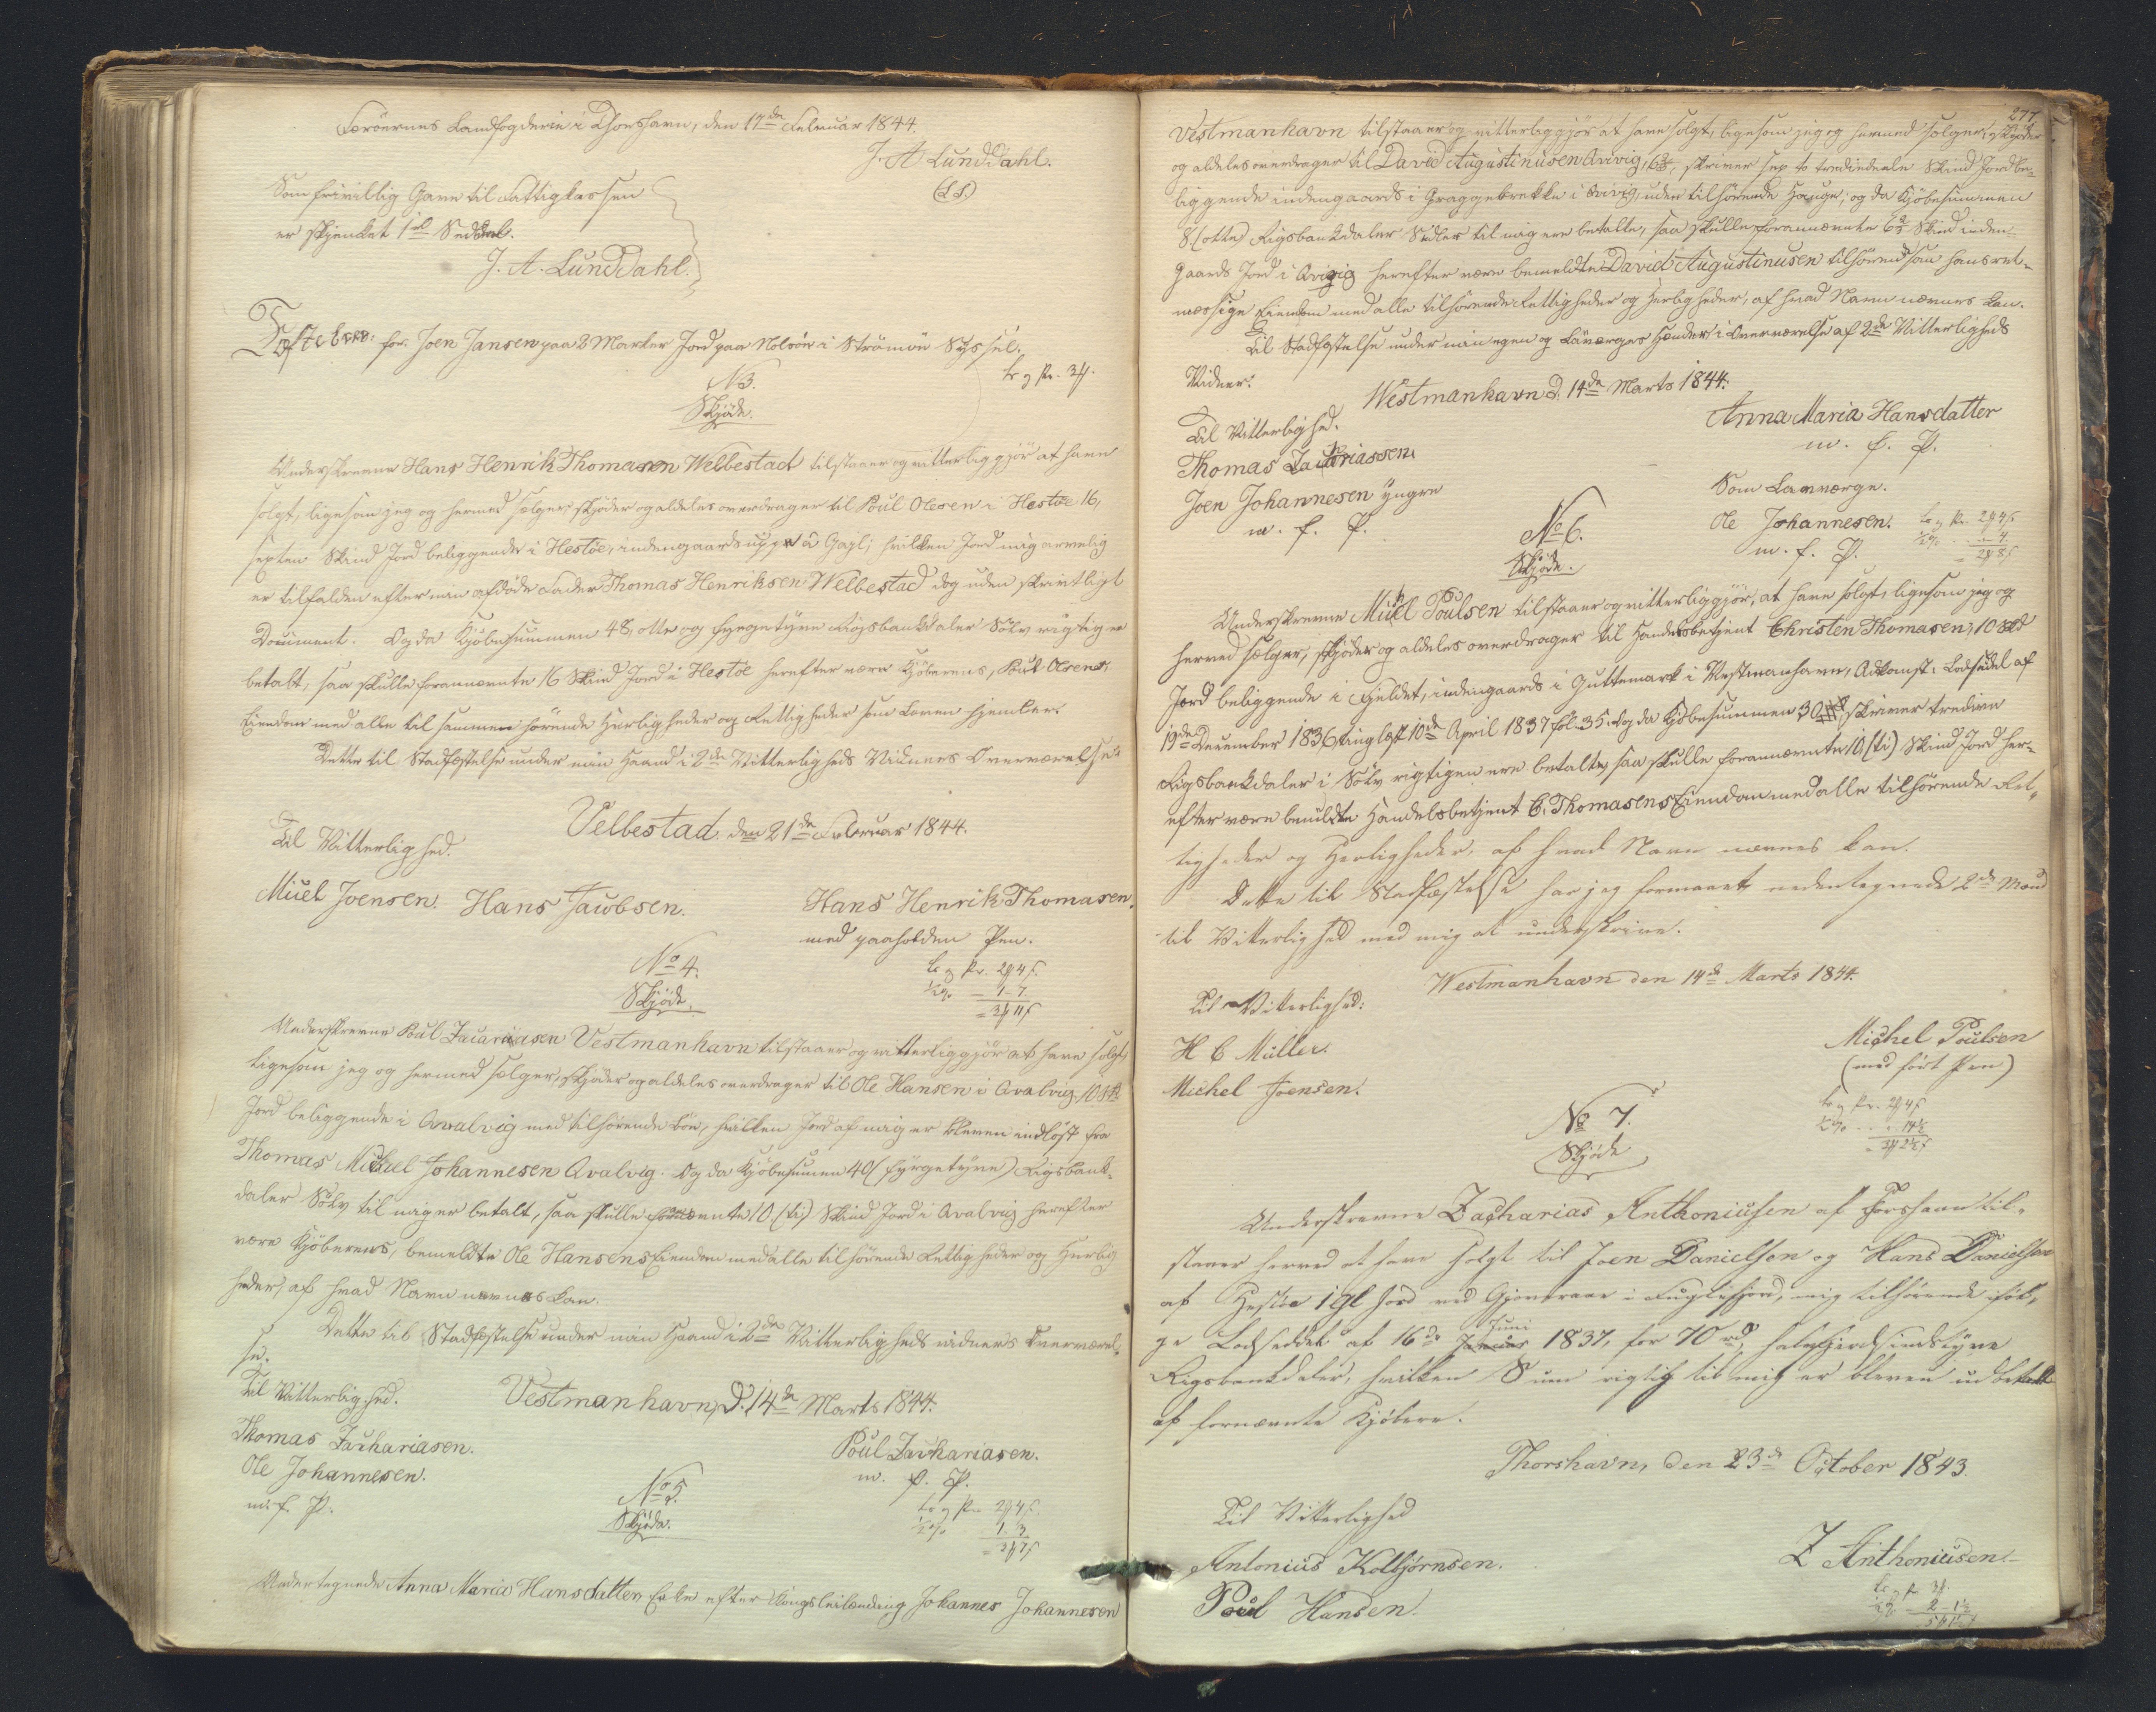 Færöernes Landfogderie i Thorshavn, den 17de Februar 1844.
J. A. Lunddahl.
(LS)
Som frivillig Gave til Fattigkassen
er skjenket 1rd Seddel.
J. A. Lunddahl.
Fæstebrev: for Joen Jansen paa 2 Marker Jord paa Nolsöe i Strömöe Syssel.
No 3.
Skjöde.
Underskrevne Hans Henrik Thomasen Welbestad tilstaaer og vitterliggjör at have
solgt, ligesom jeg og hermed sælger skjöder og aldeles overdrager til Poul Olesen i Hestöe 16,
sexten Skind Jord beliggende i Hestöe, indengaards uppe á Gagl; hvilken Jord mig arvelig
er tilfalden efter min afdöde Fader Thomas Henriksen Welbestad dog uden skriftligt
Document. Og da Kjöbesummen 48, otte og fyrgetyve Rigsbankdaler Sölv rigtig er
betalt, saa skulle forannævnte 16 Skind Jord i Hestöe herefter være Kjöberens, Poul Olesens
Eiendom med alle til sammen hörende Herligheder og Rettigheder som Loven hjemler.
Dette til Stadfæstelse under min Haand i 2de Vitterligheds Vidners Overværelse.
Velbestad den 21de Februar 1844.
Til Vitterlighed.
Miċel Joensen. Hans Jacobsen.
Hans Henrik Thomasen.
med paaholden Pen.
No 4.
Skjöde.
Underskrevne Poul Zacariasen Vestmanhavn tilstaaer og vitterliggjör at have solgt,
ligesom jeg og hermed sælger, skjöder og aldeles overdrager til Ole Hansen i Qvalvig 10 Sk
Jord beliggende i Qvalvig med tilhörende Böe, hvilken Jord af mig er bleven indlöst fra
Thomas Michael Johannesen Qvalvig. Og da Kjöbesummen 40 (fyrgetyve) Rigsbank-
daler Sölv til mig er betalt, saa skulle fornævnte 10 (ti) Skind Jord i Qvalvig herefter
være Kjöberens, bemeldte Ole Hansens Eiendom med alle tilhörende Rettigheder og Herlig
heder, af hvad Navn nævnes kan.
Dette til Stadfæstelse under min Haand i 2de Vitterligheds vidners Overværel-
se.
Vestmanhavn, D. 14de Marts 1844.
Til Vitterlighed.
Thomas Zachariasen.
Ole Johannesen.
m. f. P.
Poul Zachariasen.
m. f. P.
No 5.
Skjöde.
Undertegnede Anna Maria Hansdatter Enke efter Kongsleilænding Johannes Johannesen
277
Vestmanhavn tilstaaer og vitterliggjör at have solgt, ligesom jeg og hermed sælger, skjöder
og aldeles overdrager til David Augustinusen Qvivig, 6⅔, skriver sex to trediedeele Skind Jord be-
liggende indengaards i Graggebrekke i Qvivig, uden tilhörende Hauge; og da Kjöbesummen
8 (otte) Rigsbankdaler Sedler til mig ere betalte, saa skulle forannævnte 6⅔ Skind inden-
gaards Jord i Qvivig herefter være bemeldte David Augustinusen tilhörende som hans ret-
mæssige Eiendom med alle tilhörende Rettigheder og Herligheder, af hvad Navn nævnes kan.
Til Stadfæstelse under min egen og Laværges Hænder i Overværelse af 2de Vitterligheds
Vidner.
Westmanhavn D. 14de Marts 1844.
Til Vitterlighed.
Thomas Zachariassen.
Joen Johannesen yngre
m. f. P.
Anna Maria Hansdatter
m. f. P.
Som Lavværge.
Ole Johannesen.
m. f. P.
No 6.
Skjöde.
Underskrevne Michel Poulsen tilstaaer og vitterliggjör, at have solgt, ligesom jeg og
herved sælger, skjöder og aldeles overdrager til Handelsbetjent Christen Thomasen, 10 Skd
Jord beliggende i Fjeldet, indengaards i Guttemark i Vestmanhavn, Adkomst: Lodseddel af
19de December 1836 tinglæst 10de April 1837 fol. 35. Og da Kjöbesummen 30 skriver tredive
Rigsbankdaler i Sölv rigtigen ere betalte, saa skulle forannævnte 10 (ti) Skind Jord her-
efter være bemeldte Handelsbetjent C. Thomasens Eiendom med alle tilhörende Ret-
tigheder og Herligheder, af hvad Navn nævnes kan.
Dette til Stadfæstelse har jeg formaaet nedentegnede 2de Mænd
til Vitterlighed med mig at underskrive.
Westmanhavn den 14de Marts 1844.
Til Vitterlighed:
H C Müller.
Michel Joensen.
Michel Poulsen
(med fört Pen)
No 7.
Skjöde
Underskrevne Zacharias Anthoniusen af Thorshavn til-
staaer herved at have solgt til Joen Danielsen og Hans Danielsen
af Hestöe 1 Gl Jord ved Gjoveraae i Fuglefjord, mig tilhörende iföl-
ge Lodseddel af 16de Juni 1837, for 70 rd, halvfjerdsindstyve
Rigsbankdaler, hvilken Sum rigtig til mig er bleven udbetalt
af fornævnte Kjöbere.
Thorshavn, den 23de October 1843.
Til Vitterlighed
Antonius Kolbjørnsen.
Poul Hansen.
Z Anthoniusen